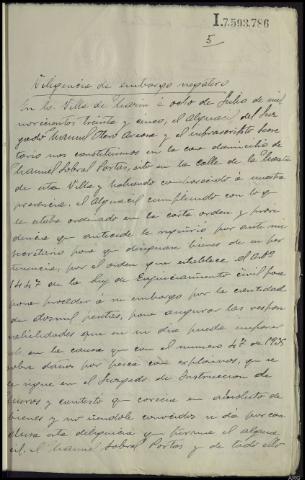 I.7.593.786
5
Diligencia de embargo negativo
En la Villa de Marín a ocho de Julio de mil
novecientos treinta y cinco, el alguacil del Juz
gado Manuel Otero y el infrascripto Secre
tario nos constituimos en la casa domicilio de
Manuel Sobral Portas, sito en la calle de la
de esta Villa y habiendo comparecido a nuestra
presencia, el alguacil cumpliendo con lo que
se estaba ordenado en la carta orden y provi
dencia que antecede le requirió por ante mi
Secretario para que designase bienes de su per
tenencia, por el orden que establece el artº
1447 de la ley de Enjuiciamiento civil para
poner proceder a su embargo por la cantidad
de dos mil pesetas, para asegurar las respon
sabilidades que en su dia pueda
le en la causa que con el numero 47 de 1935
sobre daños por pesca con explosivos, que se
le sigue en el Juzgado de Instruccion de
y contestó que carecia en absoluto de
bienes y no siendole conocidos se da por con
clusa esta diligencia que firma el algua
cil, el Manuel Sobral Portas y de todo ello